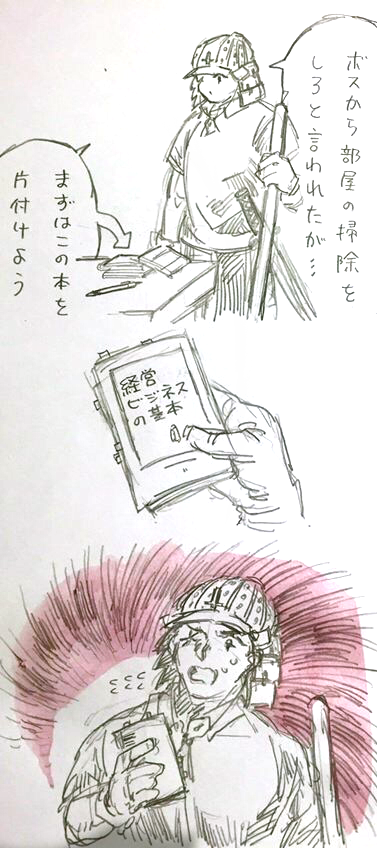 ボスから部屋の掃除を
しろと言われたが…
まずはこの本を
片付けよう
経営
ビジネス
の基本